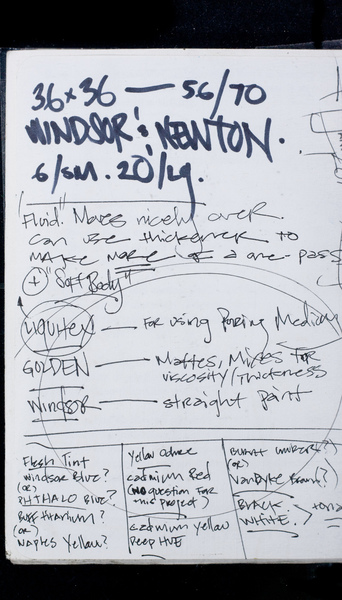 36x36 — 56/70
WINDSOR & NEWTON.
6/sm. 20/Lg.
Fluid. Moves nicely over.
Can use thickener to
MAKE MORE of a one-pass
+ "Soft Body"
LIQUITEX — For using Pouring Medium
GOLDEN — Mattes, Mixes for
viscosity/Thickness
Windsor — straight paint
Flesh Tint
Windsor Blue?
(or)
PHTHALO Blue?
BUFF titanium?
(or)
NAPLES Yellow?
Yellow Ochre
cadmium Red
(NO question for
this project)
cadmium yellow
DEEP HUE
BURNT UMBER(?)
(or)
VanDyke Brown(?)
BLACK
WHITE.